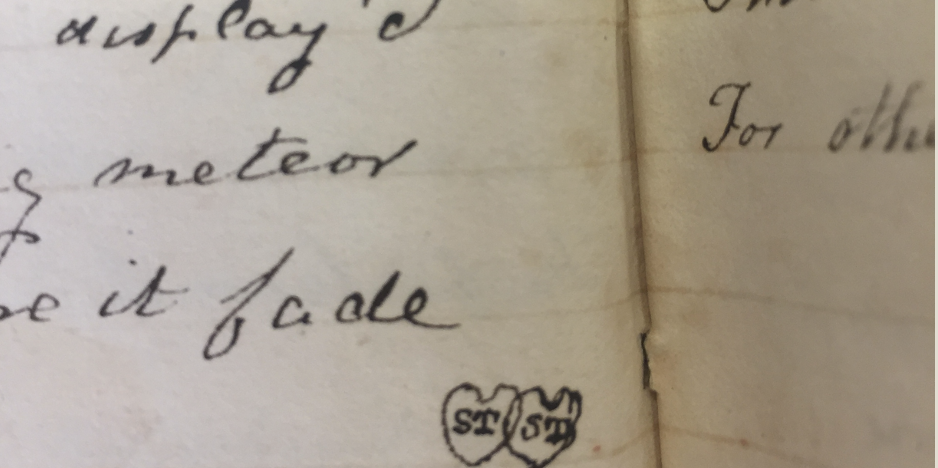 display'd
meteor
it fade
ST ST
For